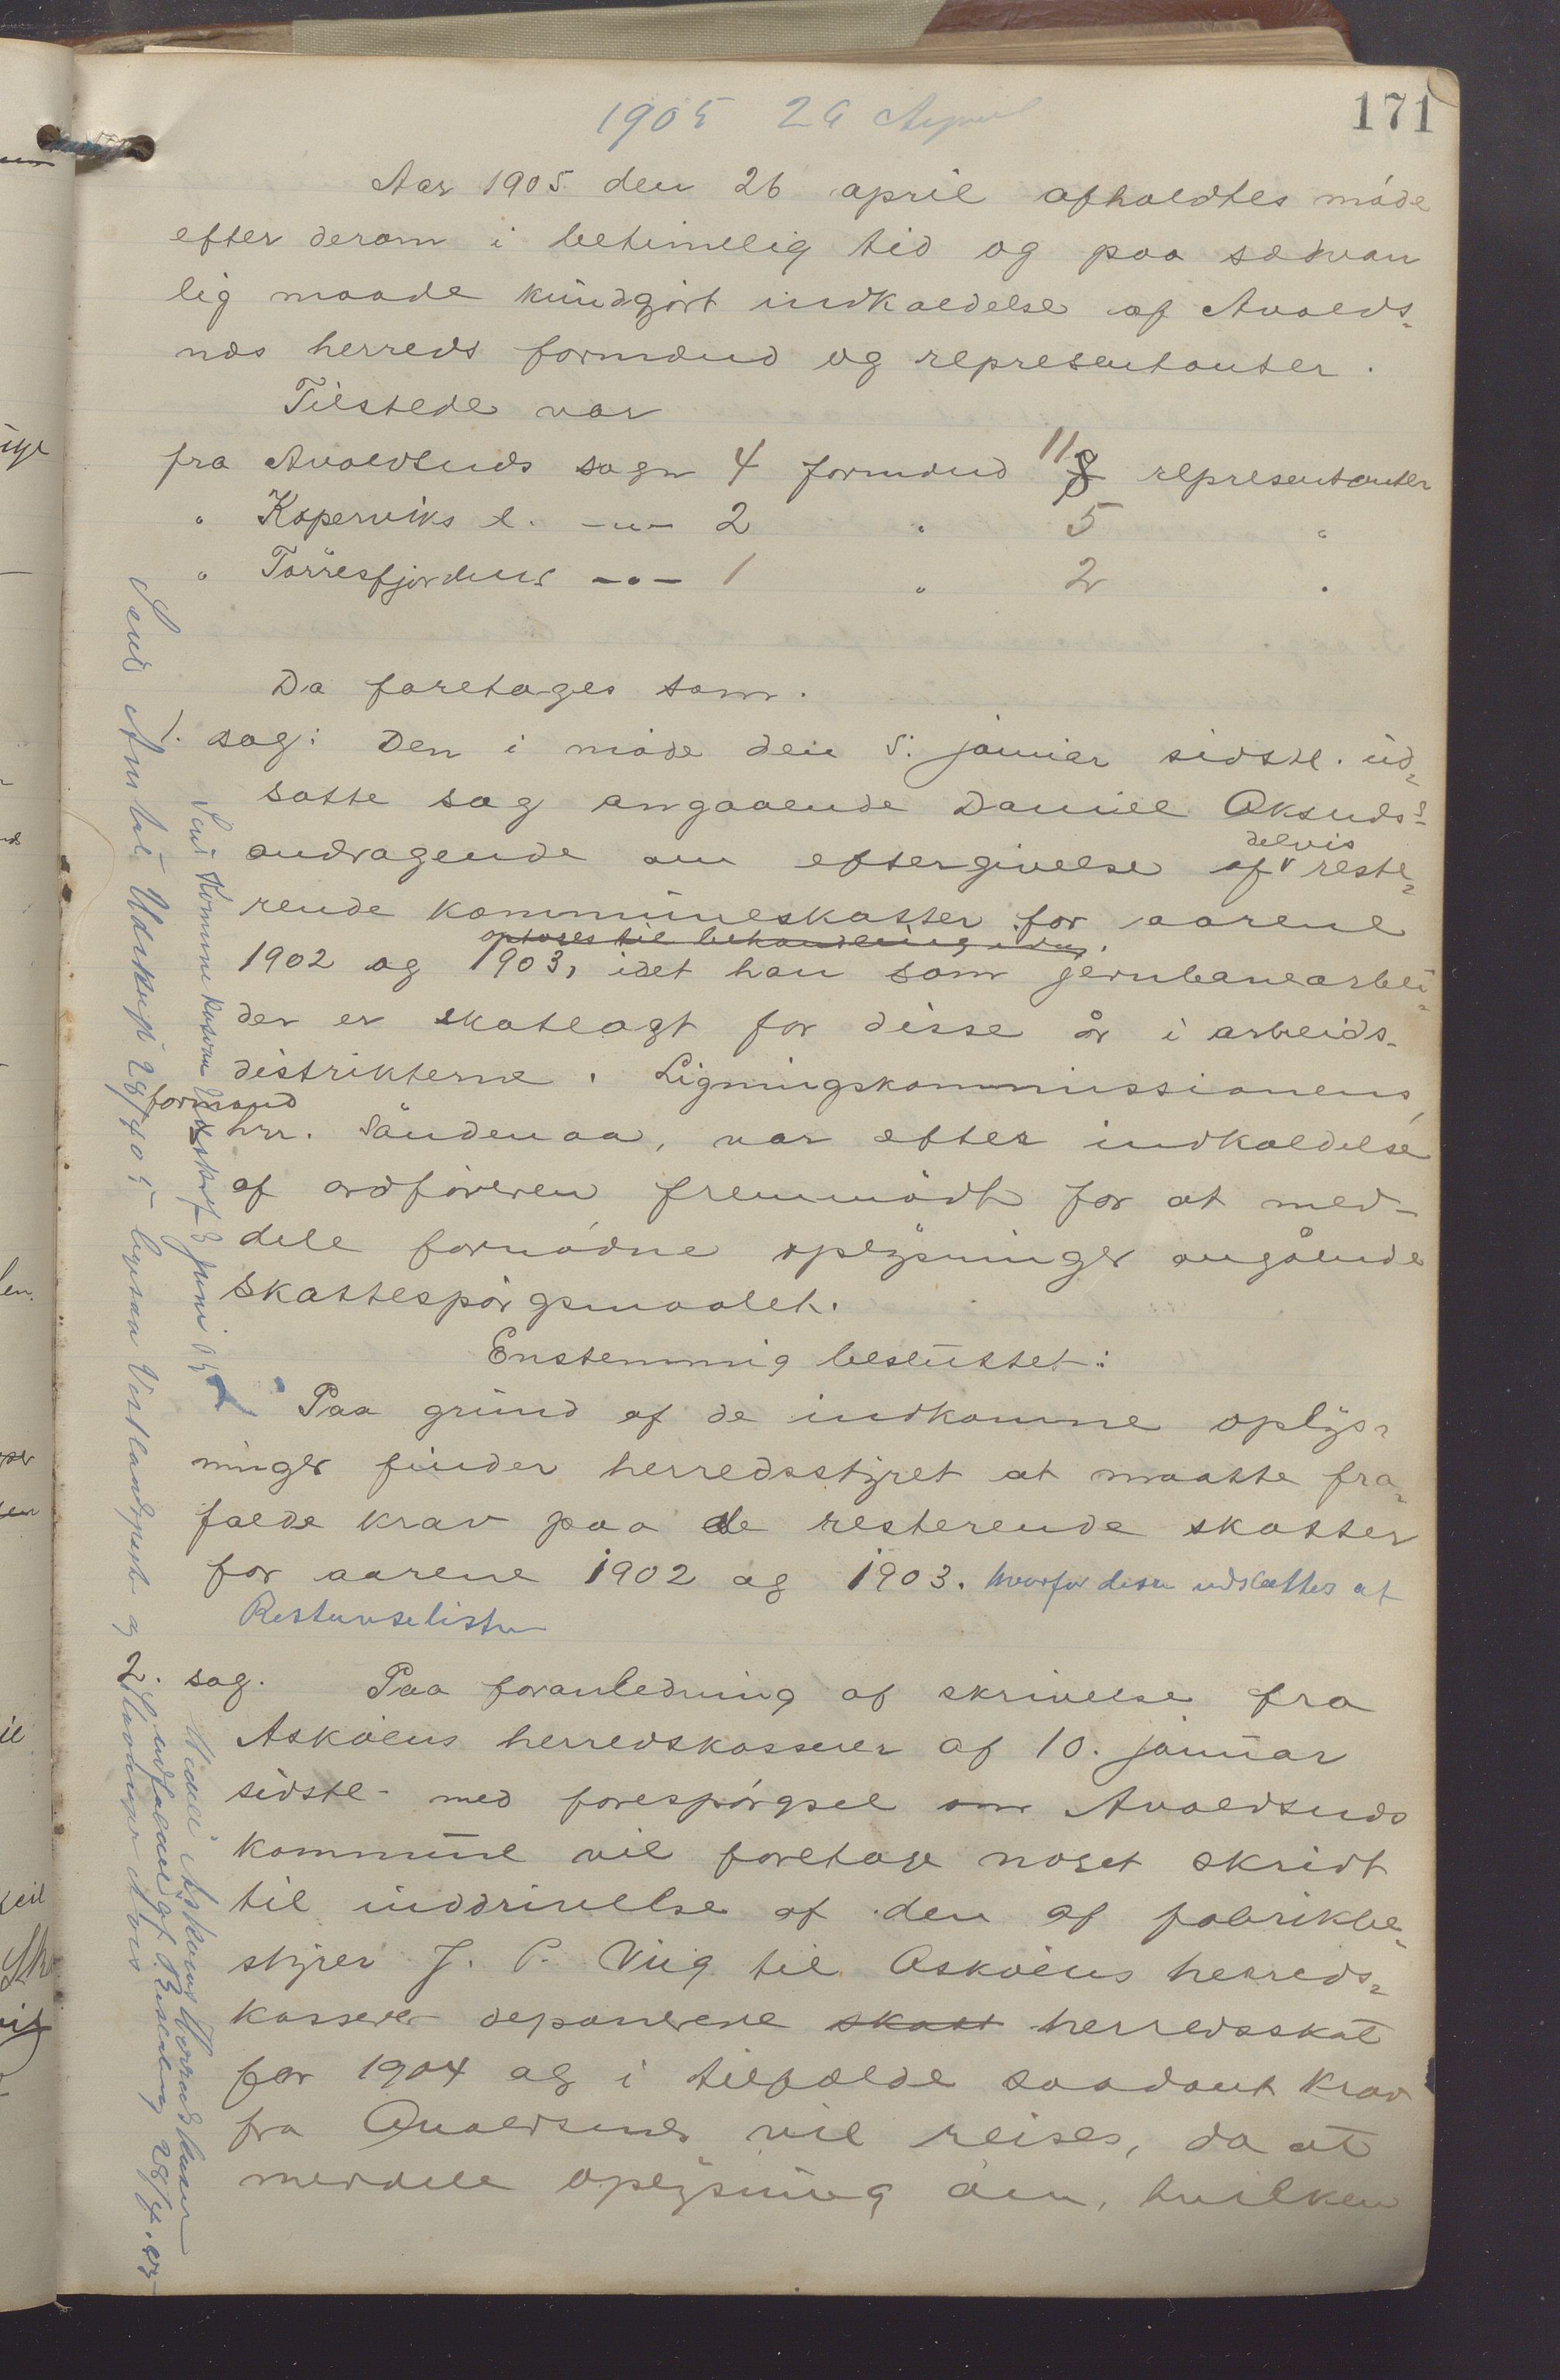 171
1905 26 April
Aar 1905 den 26 april afholdtes møde
efter derom i betimelig tid og paa sædvan
lig maade kundgjort indkaldelse af Avalds-
næs herreds formænd og representanter.
Tilstede var
fra Avaldsnæs sogn 4 formænd 11 8 representanter
" Koperviks l. -"- 2 " 5 "
" Torresfjordens -"- 1 " 2 "
Da foretages som.
1. sag: Den i møde den 5. januar sidstl. ud-
satte sag angaaende Daniel Aksnæs's
delvis
andragende om eftergivelse af reste-
rende kommuneskatter for aarene
optoges til behandling idag.
1902 og 1903, idet han som jernbanearbei-
der er skatlagt for disse år i arbeids-
distrikterne. Ligningskommissionens
formand
hrr. Søndenaa, var efter indkaldelse
af ordføreren fremmødt for at med-
dele fornødne oplysninger angående
skattespørgsmaalet.
Enstemmig besluttet:
Paa grund af de indkomne oplys-
ninger finder herredsstyret at maatte fra-
falde krav paa de resterende skatter
for aarene 1902 og 1903. hvorfor disse udslettes af
Restanselisten
2. sag. Paa foranledning af skrivelse fra
Askøens herredskasserer af 10. januar
sidstl. med forespørgsel om Avaldsnæs
kommune vil foretage noget skridt
til inddrivelse af den af fabrikbe-
styrer J. P. Viig til Askøens herreds-
kasserer deponerede skatt herredsskat
for 1904 og i tilfælde saadant krav
fra Avaldsnæs vil reises, da at
meddele oplysning om, hvilken
Sendt Amtet Udskrift 28/4 05
Sendt Kommunekassen Udskrift 3 juni 05
Meddelt Askøens Herredskasserer
indholdet af Beslutning 28/4. 05